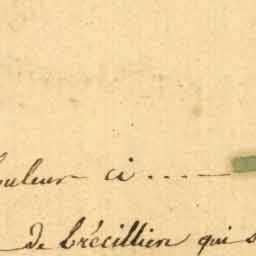 couleur ci ... —
de brécillien qui s